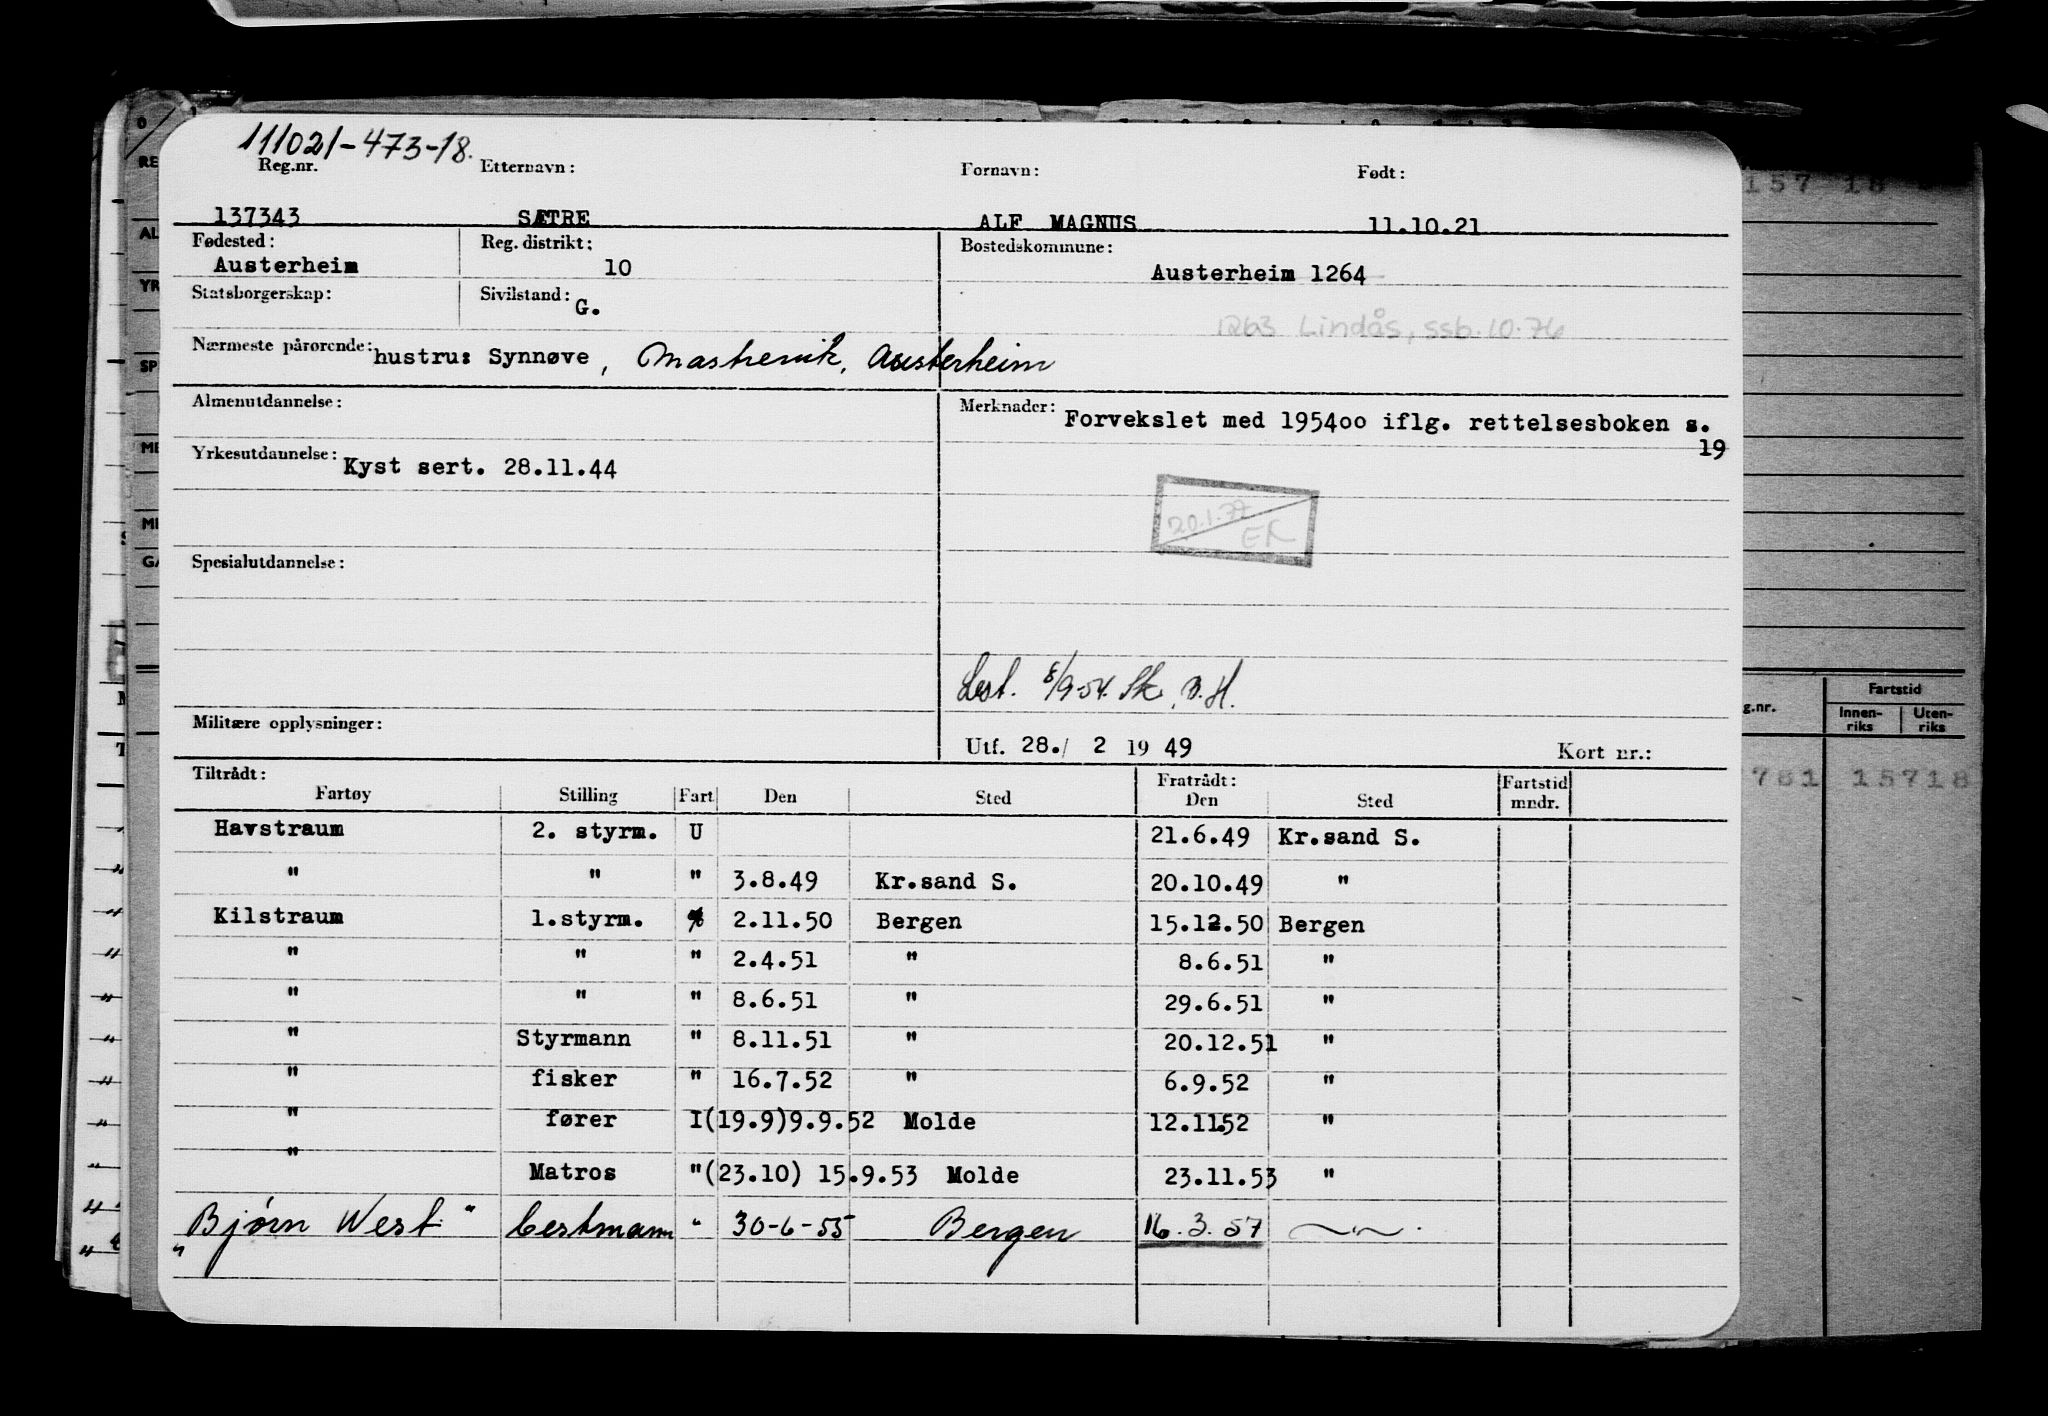 111021-473-18.
Reg.nr. Etternavn: Fornavn: Født:
137343 SÆTRE ALF MAGNUS 11.10.21
Fødested: Reg. distrikt: Bostedskommune:
Austerheim 10 Austerheim 1264
Statsborgerskap: Sivilstand: G.
1263 Lindås, ssb. 10.76
Nærmeste pårørende: hustru: Synnøve, Mastrevik, Austerheim
Almenutdannelse: Merknader: Forvekslet med 195400 iflg. rettelsesboken s.
19
Yrkesutdannelse: Kyst sert. 28.11.44
20.1.77
ER
Spesialutdannelse:
8/9-54. B.H.
Militære opplysninger:
Utf. 28./ 2 19 49 Kort nr.:
Tiltrådt: Fratrådt: Fartstid
Fartøy Stilling Fart Den Sted Den Sted mndr.
Havstraum 2. styrm. U 21.6.49 Kr.sand S.
" " " 3.8.49 Kr.sand S. 20.10.49 "
Kilstraum 1.styrm. 2.11.50 Bergen 15.12.50 Bergen
" " " 2.4.51 " 8.6.51 "
" " " 8.6.51 " 29.6.51 "
" Styrmann " 8.11.51 " 20.12.51 "
" fisker " 16.7.52 " 6.9.52 "
" fører I(19.9)9.9.52 Molde 12.11.52 "
" Matros "(23.10) 15.9.53 Molde 23.11.53 "
" Bjørn West " bestmann " 30-6-55 Bergen 16.3.57 —"—.
157 18
g.nr. Fartstid
Innen-riks Uten-riks
781 15718